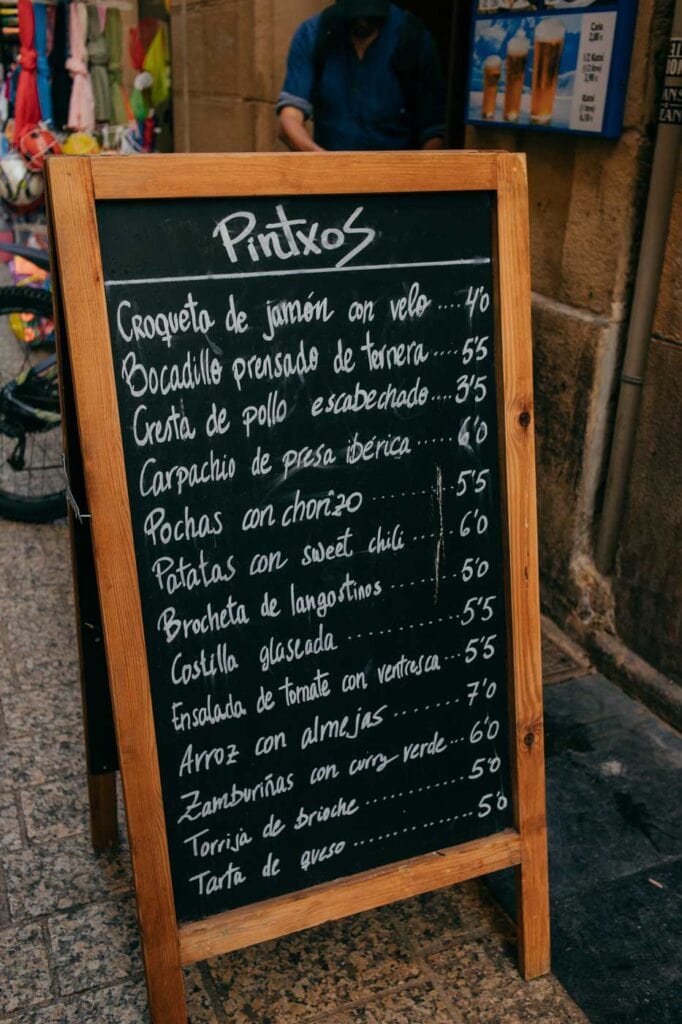 Pintxos
Croqueta de jamón con velo .... 4'0
Bocadillo prensado de ternera .... 5'5
Cresta de pollo escabechado .... 3'5
Carpachio de presa ibérica ..... 6'0
Pochas con chorizo ......... 5'5
Patatas con sweet chili .... 6'0
Brocheta de langostinos ........ 5'0
Costilla glaseada ............ 5'5
Ensalada de tomate con ventresca ... 5'5
Arroz con almejas ....... 7'0
Zamburiñas con curry verde ... 6'0
Torrija de brioche .......... 5'0
Tarta de queso ............ 5'0
Caña